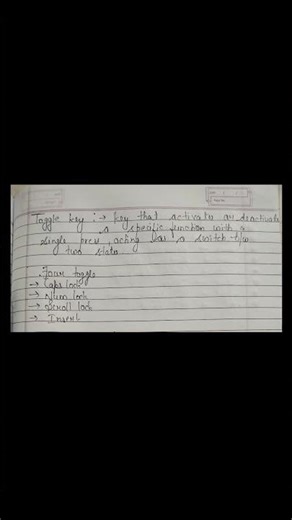 Toggle key :→ key that activate or deactivate
a specific function with a
single press, acting as a switch
two state
Four toggle
→ Caps lock
→ Num lock
→ Scroll lock
→ Insert